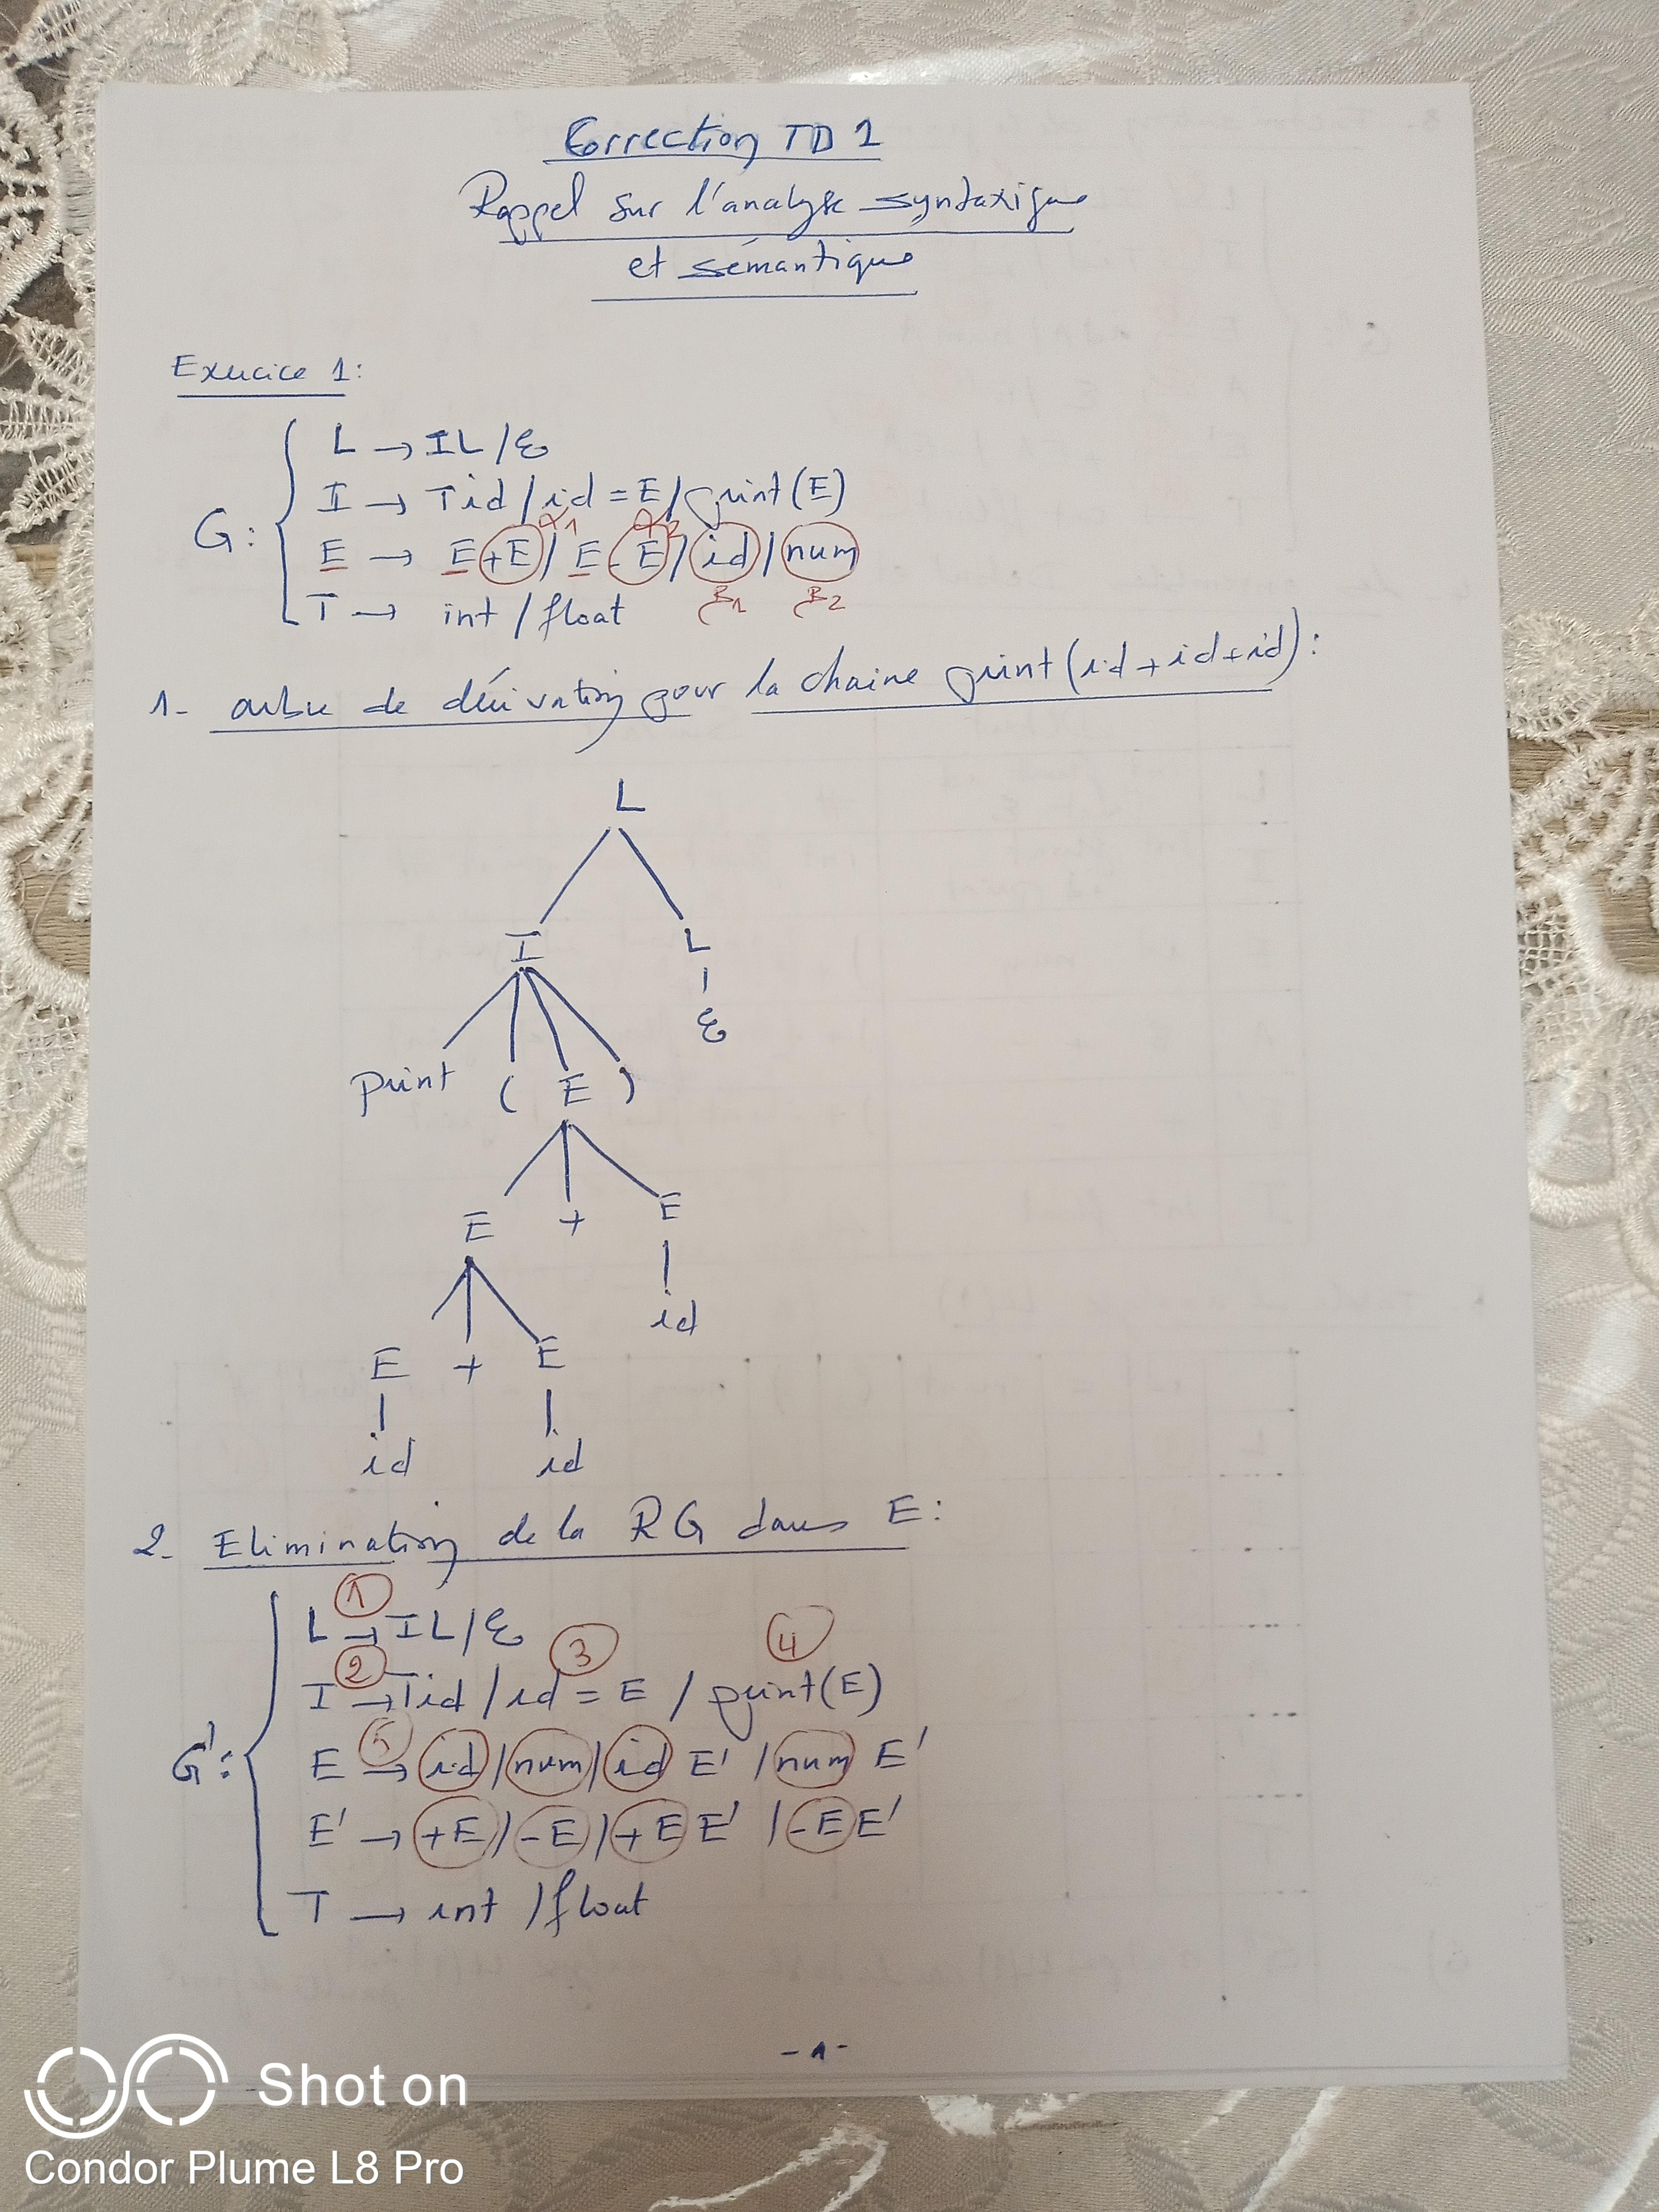 Correction TD 1
Rappel sur l'analyse syntaxique
et sémantique
Exercice 1:
G:
L → IL / ε
I → T id / id = E / print(E)
α1 α2
E → E + E / E - E / id / num
β1 β2
T → int / float
1- arbre de dérivation pour la chaine print(id+id+id):
L
I L
ε
print ( E )
E + E
id
E + E
id id
2- Elimination de la RG dans E:
G':
① L → IL / ε
② ③ ④
I → T id / id = E / print(E)
⑤ E → id / num / id E' / num E'
E' → +E / -E / +E E' / -E E'
T → int / float
-1-
Shot on
Condor Plume L8 Pro